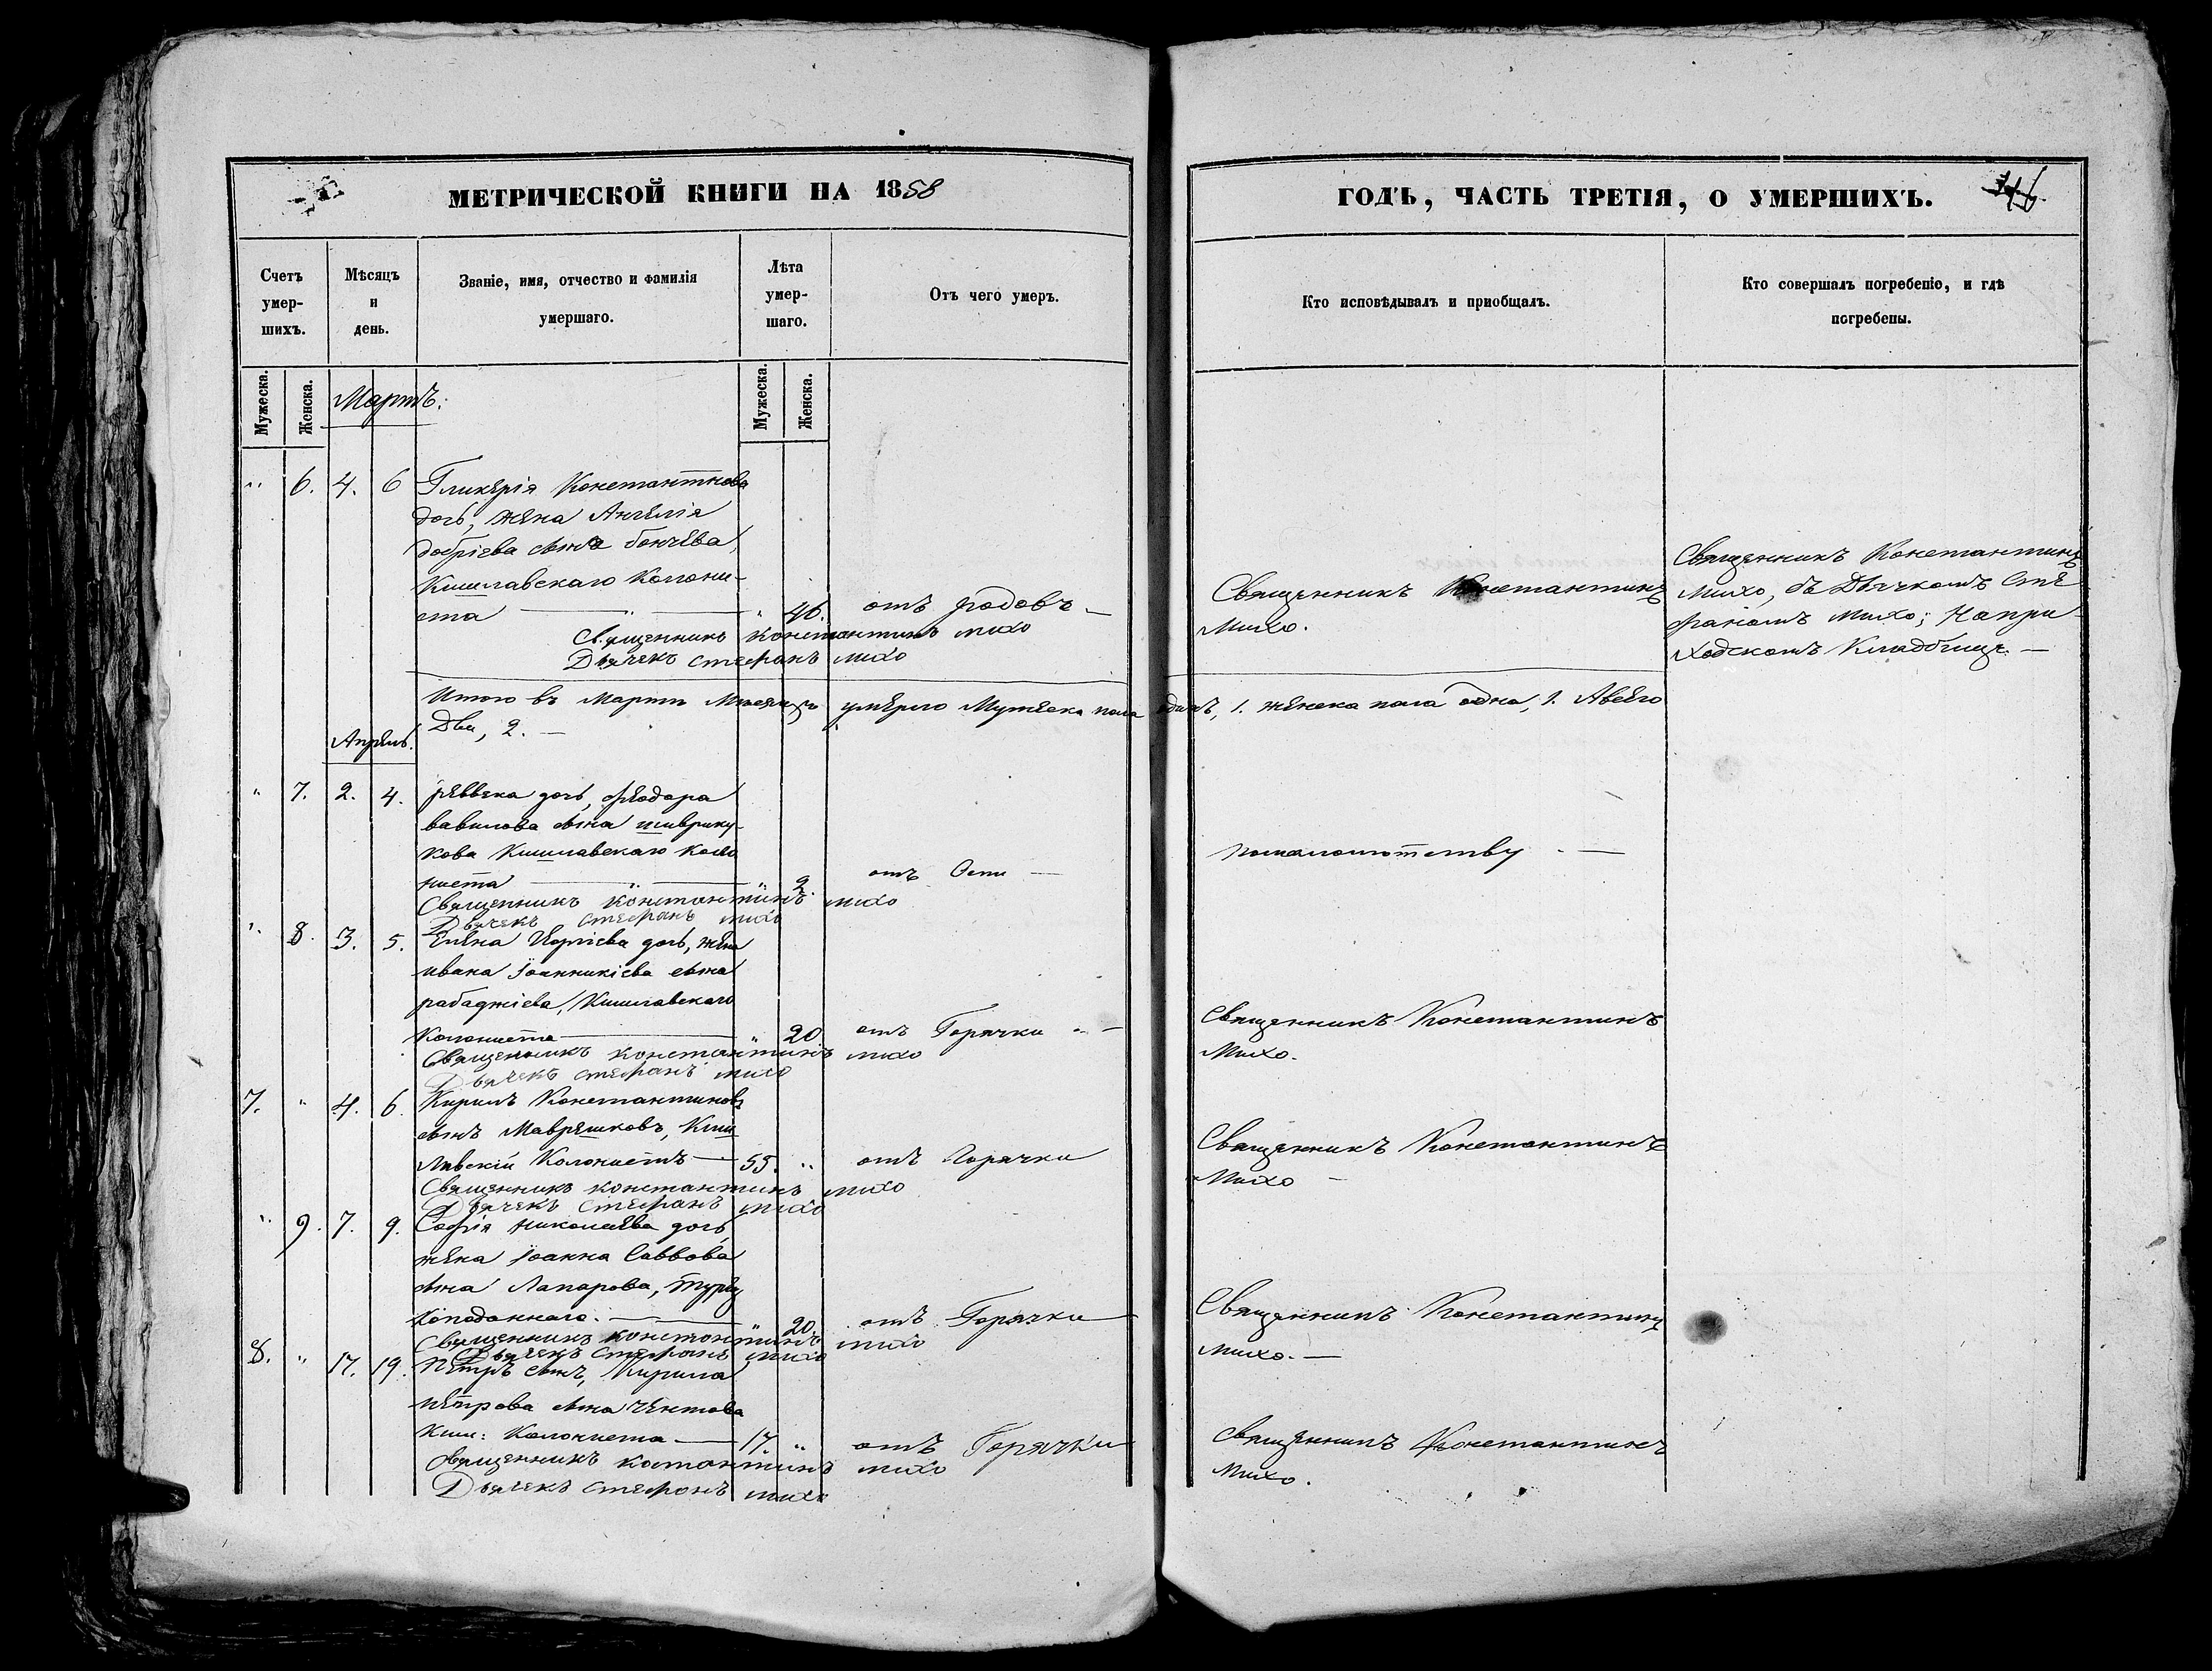 МЕТРИЧЕСКОЙ КНИГИ НА 1858
ГОДЪ, ЧАСТЬ ТРЕТІЯ, О УМЕРШИХЪ.
Счетъ умер-шихъ.
Мѣсяцъ и день.
Званіе, имя, отчество и фамилія умершаго.
Лѣта умер-шаго.
Отъ чего умеръ.
Кто исповѣдывалъ и пріобщалъ.
Кто совершалъ погребеніе, и гдѣ погребены.
Мужеска.
Женска.
Мужеска.
Женска.
Мартъ:
" 6. 4. 6 Гликерія Константнова
дочь, жена Ангелія
добріева сына бончева,
Кишлавскаго Колони-
ста — " — " 46. отъ родовъ —
Священникъ Константинъ
Михо.
Священникъ Константинъ
Михо, съ Дьячкомъ Сте
фаномъ Михо; На при-
ходскомъ Кладбищѣ. —
Священникъ Константинъ михо
Дьячекъ стефанъ михо
Итого въ Мартѣ Мѣсяцѣ умерло Мужеска пола одинъ, 1. женска пола одна, 1. Авсего
Два, 2. —
Апрѣль.
" 7. 2. 4. реввека дочь, феодора
вавилова сына шиврику-
кова Кишлавскаго коло
ниста — " — " 2. отъ Оспи —
помалолѣтству . —
Священникъ константинъ михо
Дьячекъ стефанъ михо
" 8. 3. 5. Елена Георгіева дочь, жена
ивана Іоанникіева сына
рабаджіева, Кишлавскаго
Колониста — " 20 отъ Горячки " —
Священникъ Константинъ
Михо.
Священникъ константинъ михо
Дьячекъ стефанъ михо
7. " 4. 6. Кирилъ Константиновъ
сынъ Маврешковъ, Киш
лавскій Колонистъ — 55. " отъ Горячки
Священникъ Константинъ
Михо —
Священникъ константинъ михо
Дьячекъ стефанъ михо
" 9. 7. 9. Софія николаева дочь,
жена Іоанна Саввова
сына Лапарова, турец
коподаннаго. — " 20. отъ Горячки
Священникъ Константинъ
Михо. —
Священникъ константинъ михо
Дьячекъ стефанъ михо
8. " 17. 19. Петръ сынъ, Кирила
петрова сына Чентова
Киш: Колониста — 17. " отъ Горячки
Священникъ Константинъ
Михо.
священникъ костантинъ михо
Дьячекъ стефонъ михо